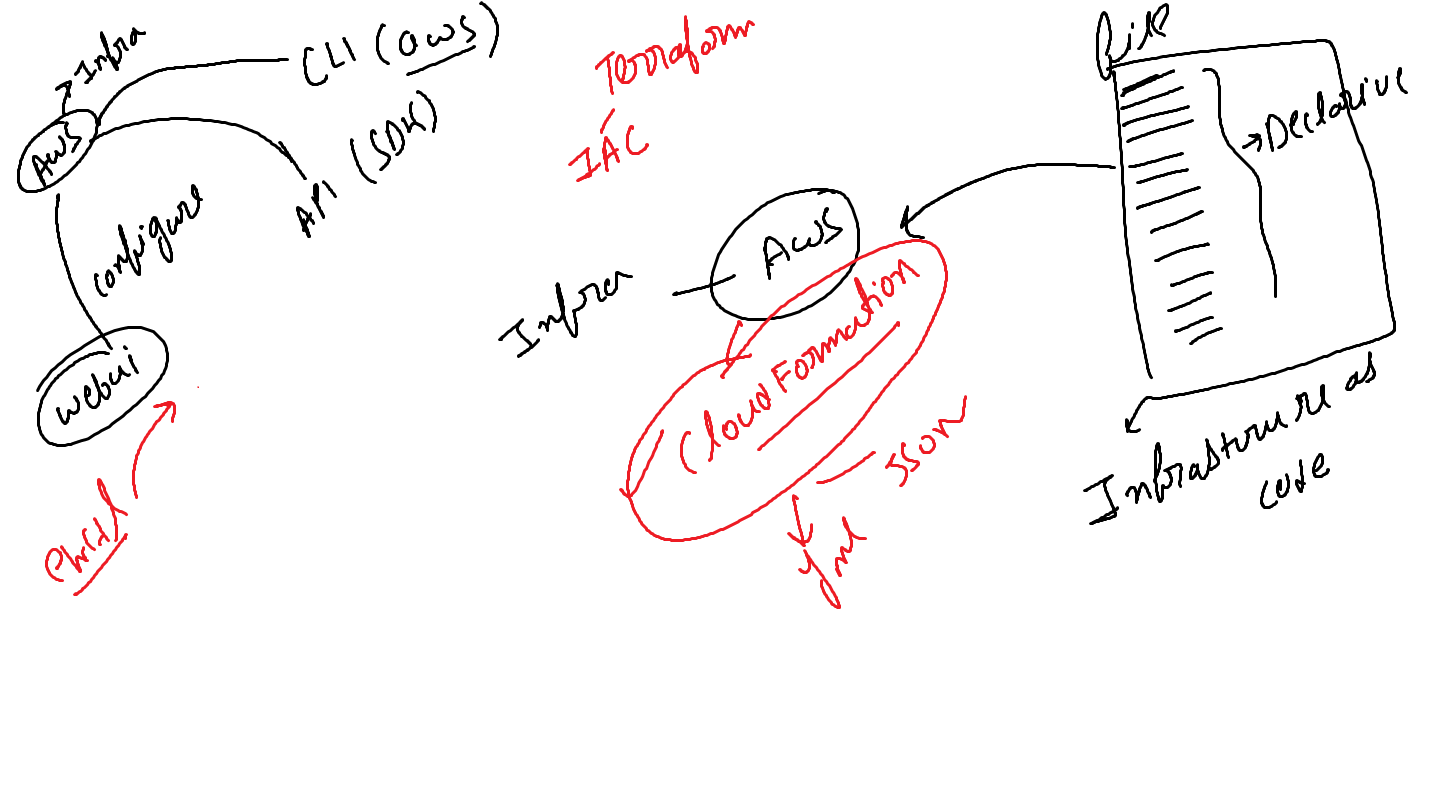 Infra
CLI (aws)
AWS
API (SDK)
configure
webui
Terraform
IAC
AWS
Infra
CloudFormation
JSON
yml
file
Declarive
Infrasture as
code